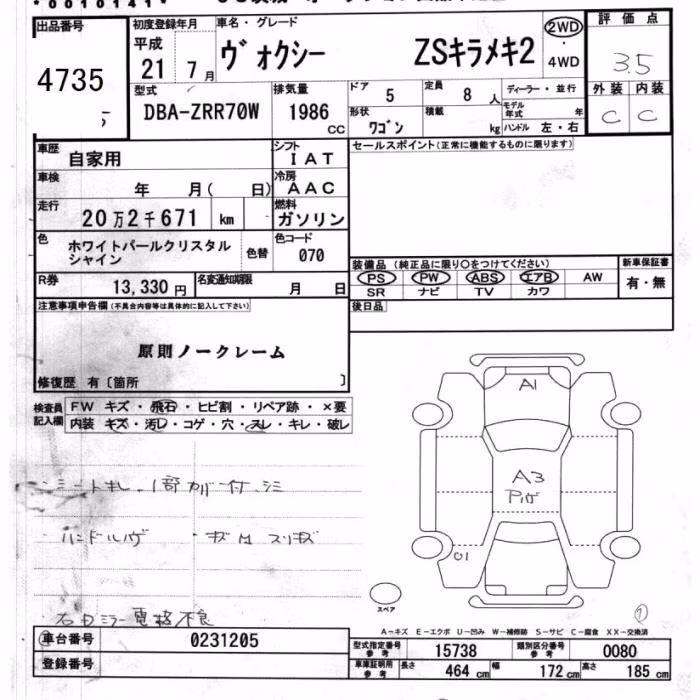 出品番号 初度登録年月 車名・グレード 評価点
4735
平成 21年 7月 ヴォクシー ZSキラメキ2 2WD・4WD 3.5
型式 排気量 ドア 5 定員 8人 ディーラー・並行 外装 内装
DBA-ZRR70W 1986cc 形状 ワゴン 積載 kg モデル年式 年 ハンドル 左・右 C C
車歴 自家用 シフト IAT セールスポイント(正常に機能するものに限ります)
車検 年 月( 日) 冷房 AAC
走行 20万2千671 km 燃料 ガソリン
色 ホワイトパールクリスタルシャイン 色替 色コード 070
装備品 (純正品に限り○をつけてください) 新車保証書
R券 13,330円 名変通知期限 月 日 PS PW ABS エアB AW 有・無
SR ナビ TV カワ
注意事項申告欄(不具合内容等は具体的に記入して下さい) 後日品
原則ノークレーム
修復歴 有〔箇所 〕
検査員記入欄 FW キズ・飛石・ヒビ割・リペア跡・×要
内装 キズ・汚レ・コゲ・穴・スレ・キレ・破レ
A1
A3
O1
スペア
右Dミラー電格不良
A-キズ E-エクボ U-凹み W-補修跡 S-サビ C-腐食 XX-交換済
車台番号 0231205 型式指定番号 参考 15738 類別区分番号 参考 0080
登録番号 車庫証明用 参考 長さ 464cm 幅 172cm 高さ 185cm